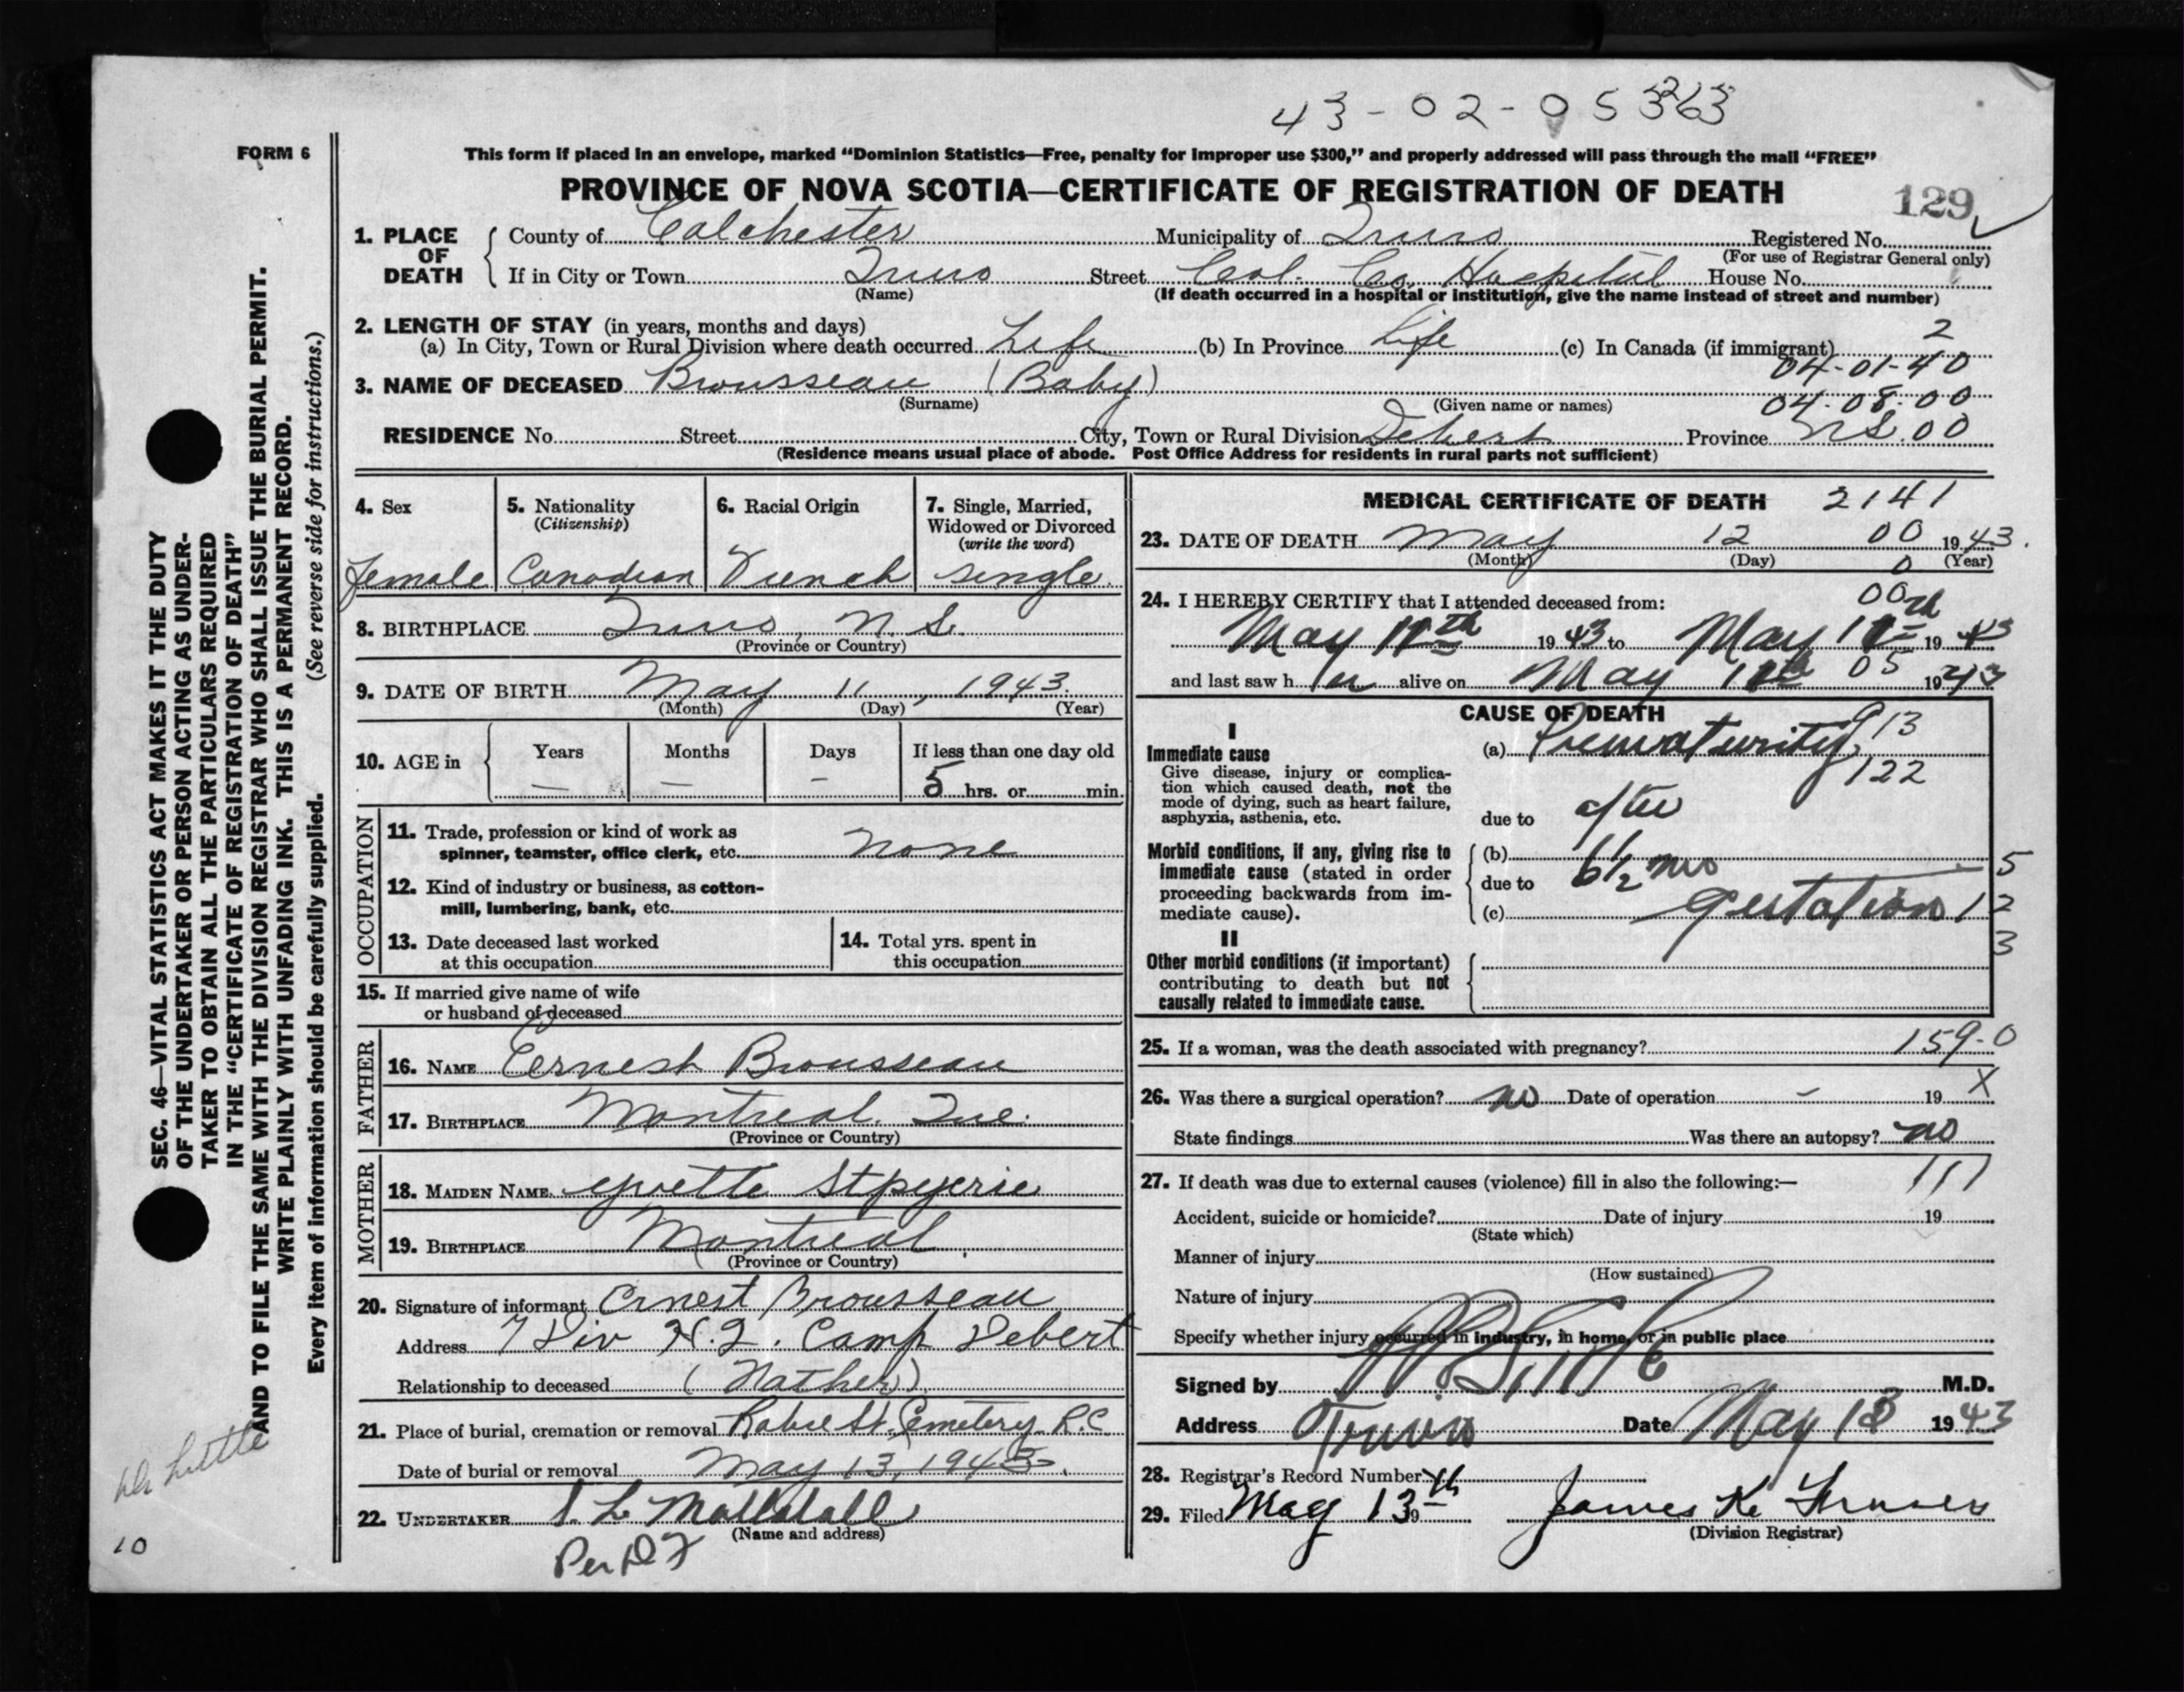 43-02-05363
FORM 6
This form if placed in an envelope, marked “Dominion Statistics—Free, penalty for improper use $300,” and properly addressed will pass through the mail “FREE”
PROVINCE OF NOVA SCOTIA—CERTIFICATE OF REGISTRATION OF DEATH
129
1. PLACE OF DEATH
County of Colchester Municipality of Truro Registered No.
(For use of Registrar General only)
If in City or Town Truro Street Col. Co. Hospital House No.
(Name) (If death occurred in a hospital or institution, give the name instead of street and number)
2. LENGTH OF STAY (in years, months and days) 2
(a) In City, Town or Rural Division where death occurred Life (b) In Province Life (c) In Canada (if immigrant)
04-01-40
3. NAME OF DECEASED Brousseau (Baby)
(Surname) (Given name or names) 04-08-00
RESIDENCE No. Street City, Town or Rural Division Debert Province N.S. 00
(Residence means usual place of abode. Post Office Address for residents in rural parts not sufficient)
4. Sex
Female
5. Nationality
(Citizenship)
Canadian
6. Racial Origin
French
7. Single, Married,
Widowed or Divorced
(write the word)
single.
8. BIRTHPLACE Truro, N.S.
(Province or Country)
9. DATE OF BIRTH May 11, 1943.
(Month) (Day) (Year)
10. AGE in Years Months Days If less than one day old
— — — 5 hrs. or min.
OCCUPATION
11. Trade, profession or kind of work as
spinner, teamster, office clerk, etc. none
12. Kind of industry or business, as cotton-
mill, lumbering, bank, etc.
13. Date deceased last worked
at this occupation
14. Total yrs. spent in
this occupation
15. If married give name of wife
or husband of deceased
FATHER
16. NAME Ernest Brousseau
17. BIRTHPLACE Montreal. Que.
(Province or Country)
MOTHER
18. MAIDEN NAME yvette
19. BIRTHPLACE Montreal.
(Province or Country)
20. Signature of informant Ernest Brousseau
Address 7 Div H.Q. Camp Debert
Relationship to deceased (Father)
21. Place of burial, cremation or removal Robie St. Cemetery R.C
Date of burial or removal May 13, 1943.
22. UNDERTAKER S. L.
(Name and address)
Per
MEDICAL CERTIFICATE OF DEATH 2141
23. DATE OF DEATH May 12 00 1943.
(Month) (Day) (Year)
0
24. I HEREBY CERTIFY that I attended deceased from: 00
May 11th 1943 to May 1943
and last saw her alive on May 05 1943
CAUSE OF DEATH
I
Immediate cause
Give disease, injury or complica-
tion which caused death, not the
mode of dying, such as heart failure,
asphyxia, asthenia, etc.
(a) Prematurity, 913
122
due to after
Morbid conditions, if any, giving rise to
immediate cause (stated in order
proceeding backwards from im-
mediate cause).
(b) 5
due to 6½ mos
(c) gestation 12
3
II
Other morbid conditions (if important)
contributing to death but not
causally related to immediate cause.
25. If a woman, was the death associated with pregnancy? 159-0
26. Was there a surgical operation? no Date of operation - 19 X
State findings Was there an autopsy? no
27. If death was due to external causes (violence) fill in also the following:— 111
Accident, suicide or homicide? Date of injury 19
(State which)
Manner of injury
(How sustained)
Nature of injury
Specify whether injury occurred in industry, in home, or in public place
Signed by M.D.
Address Truro Date May 13 1943
28. Registrar's Record Number
29. Filed May 13th 19 James K.
(Division Registrar)
SEC. 46—VITAL STATISTICS ACT MAKES IT THE DUTY
OF THE UNDERTAKER OR PERSON ACTING AS UNDER-
TAKER TO OBTAIN ALL THE PARTICULARS REQUIRED
IN THE “CERTIFICATE OF REGISTRATION OF DEATH”
AND TO FILE THE SAME WITH THE DIVISION REGISTRAR WHO SHALL ISSUE THE BURIAL PERMIT.
WRITE PLAINLY WITH UNFADING INK. THIS IS A PERMANENT RECORD.
Every item of information should be carefully supplied. (See reverse side for instructions.)
Dr Little
10